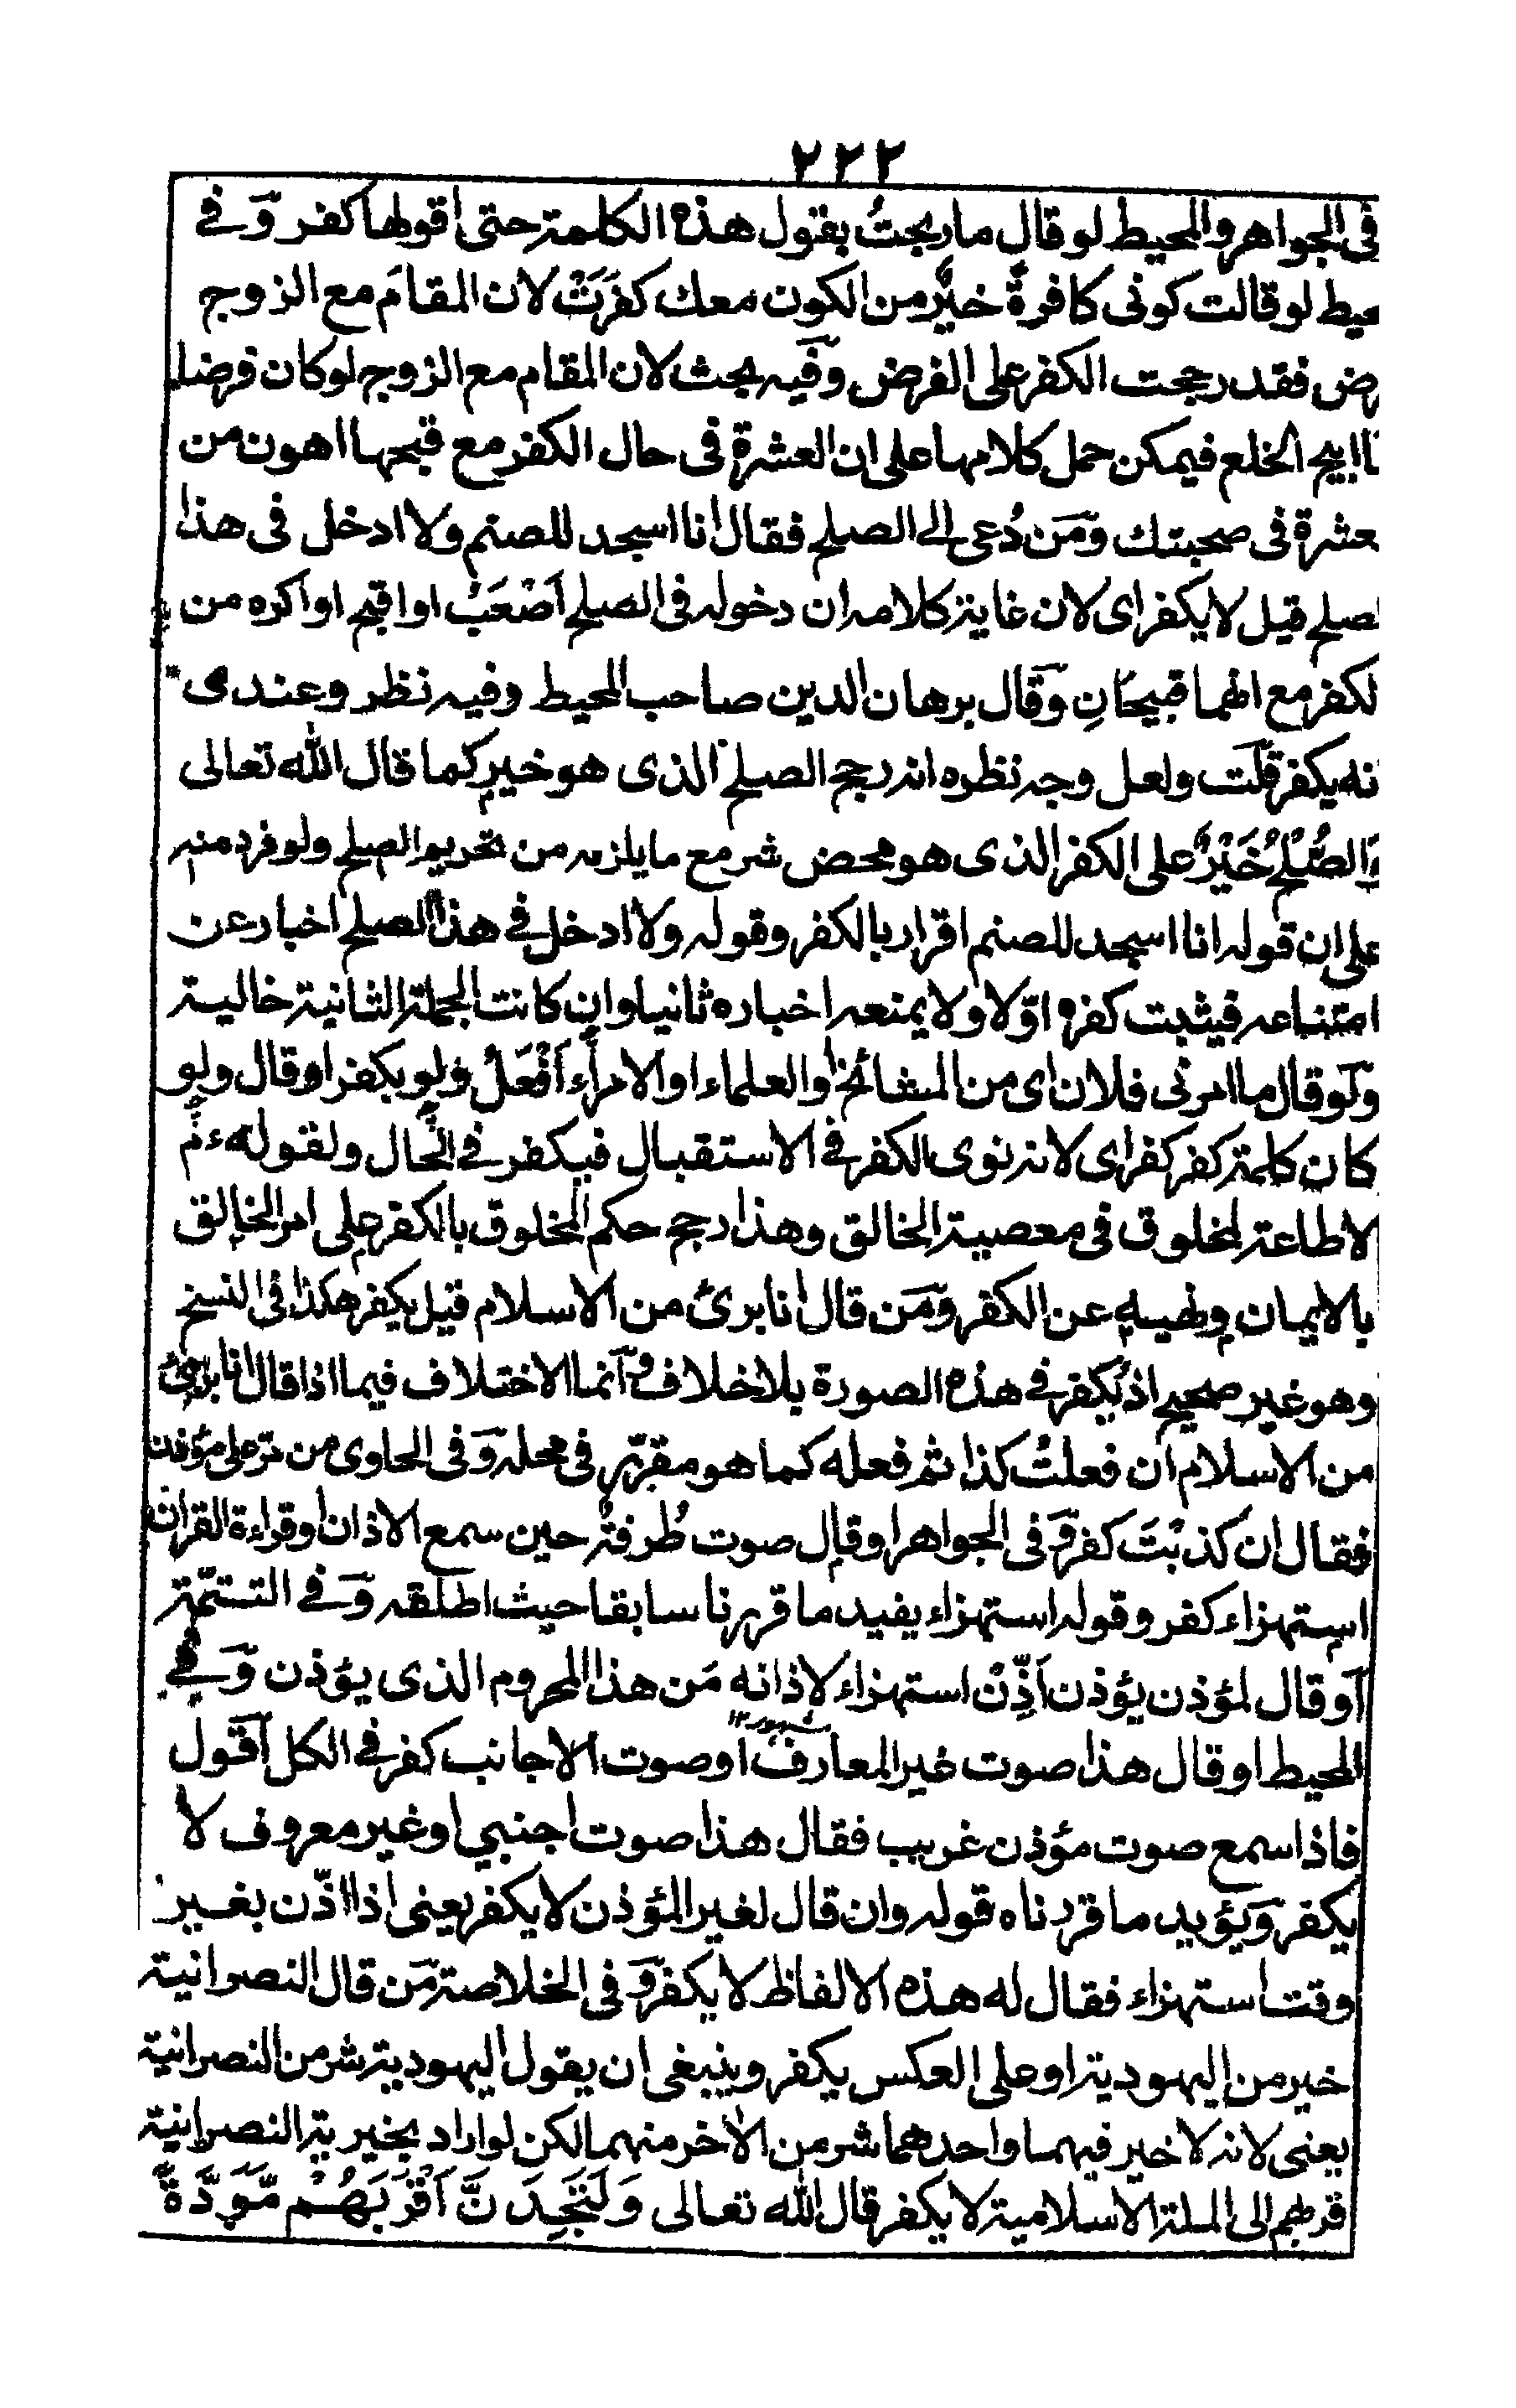 ٢٢٢
فى الجواهر والمحيط لو قال ما ربحتُ بقول هذه الكلمة حتى اقولها كفر وَفے
محيط لو قالت كونى كافرةً خيرٌ من الكون معك كفرَتْ لان المقامَ مع الزوج
رض فقد رجحت الكفر على الفرض وَفيه بحث لان المقام مع الزوج لو كان فرضا
ا ابيح الخلع فيمكن حمل كلامها على ان العشرة فى حال الكفر مع قبحها اهون من
عشرة فى صحبتك وَمَن دُعى الے الصلح فقال انا اسجد للصنم ولا ادخل فى هذا
لصلح قيل لا يكفر اى لان غاية كلامه ان دخوله فى الصلح اَصْعَبُ او اقبح او اكره من
لكفر مع انهما قبيحَانِ وَقال برهان الدين صاحب المحيط وفيه نظر وعندى
نه يكفر قلَت ولعل وجه نظره انه رجح الصلح الذى هو خير كما قال الله تعالى
وَالصُّلْحُ خَيْرٌ على الكفر الذى هو محض شر مع ما يلزمه من تحريم الصلح ولو فرد منه
على ان قوله انا اسجد للصنم اقرار بالكفر وقوله ولا ادخل فے هذا الصلح اخبار عن
امتناعه فيثبت كفره اوّلا ولا يمنعه اخباره ثانيا وان كانت الجملة الثانية خالية
وَلَو قال ما امرنى فلان اى من المشائخ او العلماء او الامرآء اَفْعَلُ ولو بكفر او قال ولو
كان كلمة كفر كفر اى لانه نوى الكفر فے الاستقبال فيكفر فے الحَال ولقوله ءم
لا طاعة لمخلوق فى معصية الخالق وهذا رجح حكم المخلوق بالكفر على امر الخالق
بالايمان ونهيه عن الكفر وَمَن قال انا برئ من الاسلام قيل يكفر هكذا فى النسخ
وهو غير صحيح اذ يكفر فے هذه الصورة بلا خلاف وَانما الاختلاف فيما اذا قال انا برئ
من الاسلام ان فعلتُ كذا ثم فعله كما هو مقرّر فى محله وَفى الحاوى من مرّ على مؤذن
فقال ان كذبْتَ كفر وَفى الجواهر او قال صوت طُرفةٌ حين سمع الاذان او قراءة القران
استهزاء كفر وقوله استهزاء يفيد ما قررنا سابقا حيث اطلقه وَفے التتمّة
آو قال لمؤذن يؤذن اَذِّنْ استهزاء لاذانه مَن هذا المحروم الذى يؤذن وَفے
المحيط او قال هذا صوت غير المعارف او صوت الاجانب كفر فے الكل اَقول
فاذا سمع صوت مؤذن غريب فقال هذا صوت اجنبي او غير معروف لا
يكفر وَيؤيد ما قررناه قوله وان قال لغير المؤذن لا يكفر يعنى اذا اذّن بغير
وقت استهزاء فقال له هذه الالفاظ لا يكفر وَفى الخلاصة مَن قال النصرانية
خير من اليهودية او على العكس يكفر وينبغى ان يقول اليهودية شر من النصرانية
يعنى لانه لا خير فيهما واحدهما شر من الاٰخر منهما لكن لو اراد بخيرية النصرانية
قربهم الى الملة الاسلامية لا يكفر قال الله تعالى وَلَتَجِدَنَّ اَقْرَبَهُمْ مَّوَدَّةً